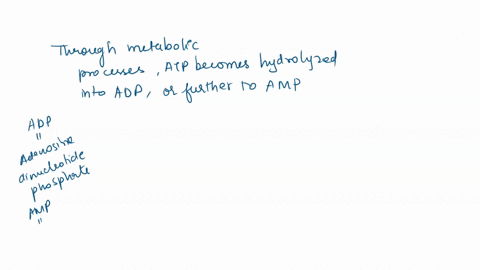 Through metabolic
processes, ATP becomes hydrolyzed
into ADP, or further to AMP
ADP
"
Adenosine
dinucleotide
phosphate
AMP
"